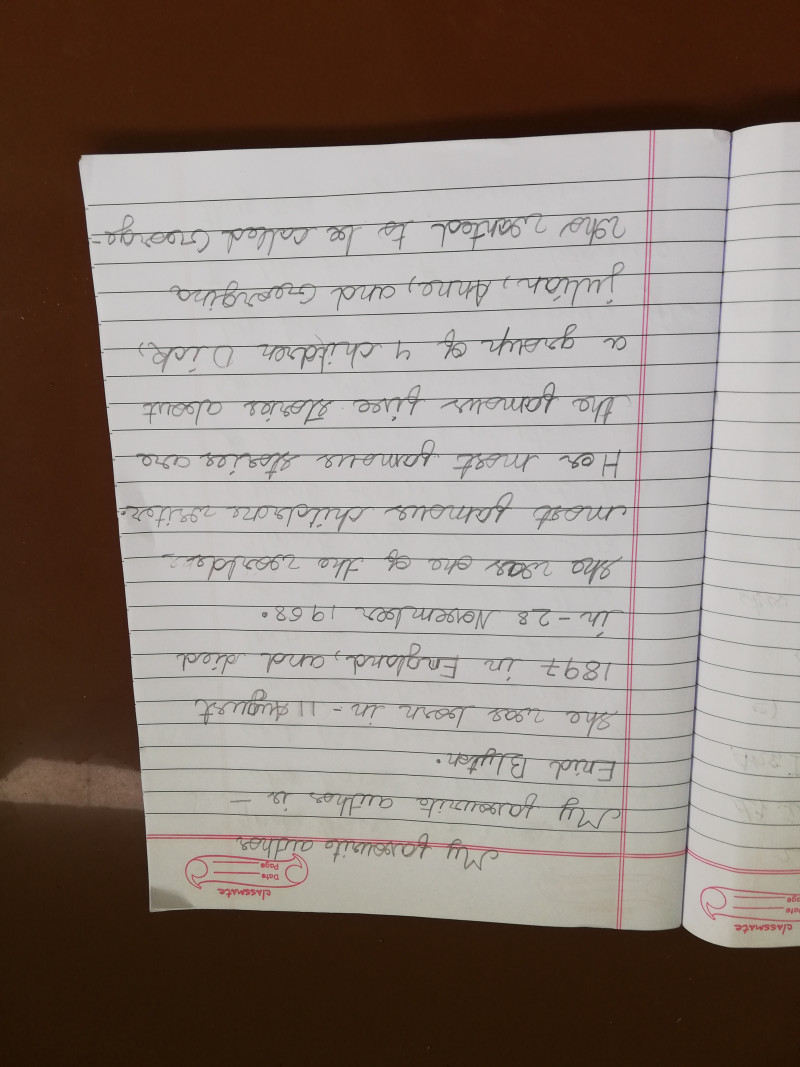 classmate
Date
Page
My favourite author
My favourite author is –
Enid Blyton.
she was born in – 11 August
1897 in England, and died
in – 28 November 1968.
she was one of the worlders
most famous childrane writer.
Her most famous stories are
the famous five stories about
a group of 4 children Dick,
julian, Anne, and Georgina
who wanted to be called George-
classmate
Date
Page